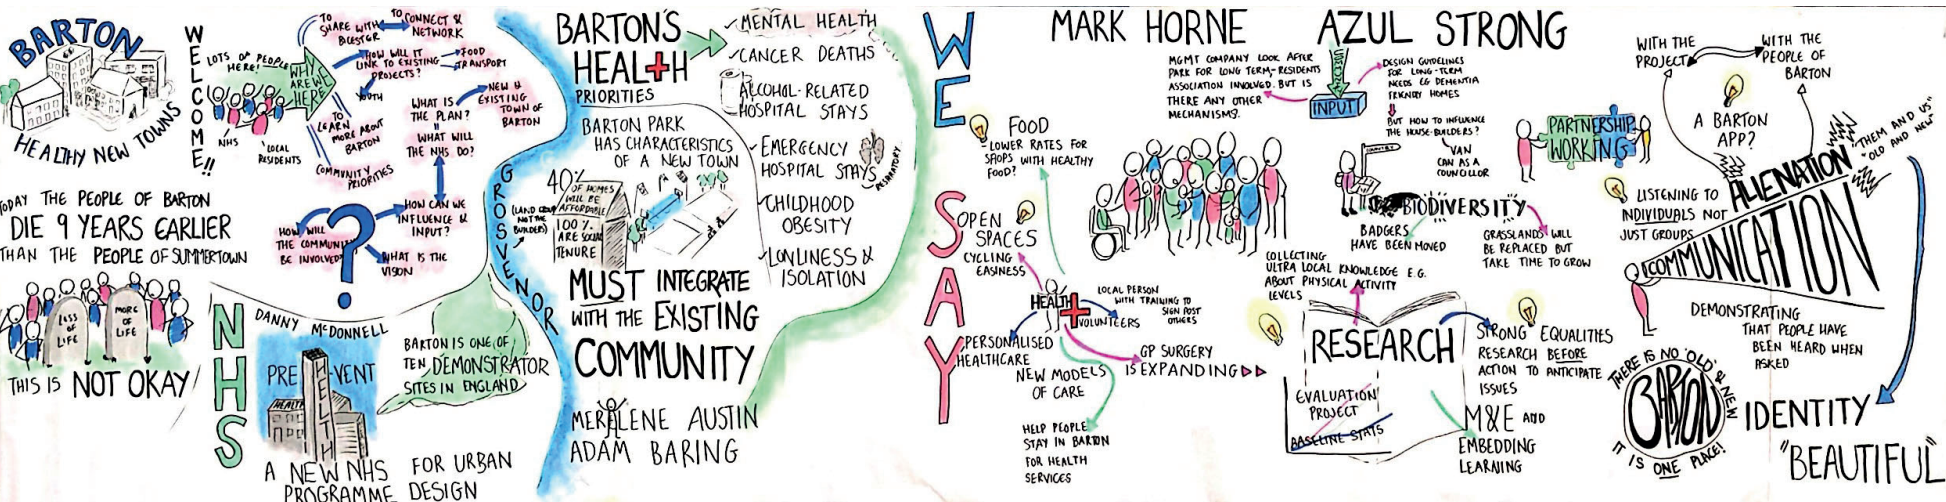 BARTON
HEALTHY NEW TOWNS
WELCOME!!
LOTS OF PEOPLE
HERE!
NHS
LOCAL
RESIDENTS
WHY
ARE WE
HERE
TO
SHARE WITH
BICESTER
TO
CONNECT &
NETWORK
HOW WILL IT
LINK TO EXISTING
PROJECTS?
FOOD
TRANSPORT
YOUTH
TO
LEARN
MORE ABOUT
BARTON
COMMUNITY
PRIORITIES
WHAT IS
THE PLAN?
NEW &
EXISTING
TOWN OF
BARTON
WHAT WILL
THE NHS DO?
HOW CAN WE
INFLUENCE &
INPUT?
HOW WILL
THE COMMUNITY
BE INVOLVED
?
WHAT IS THE
VISION
TODAY THE PEOPLE OF BARTON
DIE 9 YEARS EARLIER
THAN THE PEOPLE OF SUMMERTOWN
LESS
OF
LIFE
MORE
OF
LIFE
THIS IS NOT OKAY
NHS
DANNY McDONNELL
PRE-VENT
HEALTH
HEALTH
BARTON IS ONE OF
TEN DEMONSTRATOR
SITES IN ENGLAND
A NEW NHS
PROGRAMME
FOR URBAN
DESIGN
GROSVENOR
(LAND GROUP
NOT THE
BUILDERS)
BARTON'S
HEALTH
PRIORITIES
MENTAL HEALTH
CANCER DEATHS
ALCOHOL-RELATED
HOSPITAL STAYS
EMERGENCY
HOSPITAL STAYS
RESPIRATORY
CHILDHOOD
OBESITY
LONLINESS &
ISOLATION
BARTON PARK
HAS CHARACTERISTICS
OF A NEW TOWN
40%
OF HOMES
WILL BE
AFFORDABLE
100%
ARE SOCIAL
TENURE
MUST INTEGRATE
WITH THE EXISTING
COMMUNITY
MERLENE AUSTIN
ADAM BARING
WE SAY
MARK HORNE
FOOD
LOWER RATES FOR
SHOPS WITH HEALTHY
FOOD?
OPEN
SPACES
CYCLING
EASINESS
HEALTH
LOCAL PERSON
WITH TRAINING TO
SIGN POST
OTHERS
VOLUNTEERS
PERSONALISED
HEALTHCARE
NEW MODELS
OF CARE
GP SURGERY
IS EXPANDING
HELP PEOPLE
STAY IN BARTON
FOR HEALTH
SERVICES
AZUL STRONG
MGMT COMPANY LOOK AFTER
PARK FOR LONG TERM-RESIDENTS
ASSOCIATION INVOLVED. BUT IS
THERE ANY OTHER
MECHANISMS.
DESIGN
INPUT
DESIGN GUIDELINES
FOR LONG-TERM
NEEDS EG DEMENTIA
FRIENDLY HOMES
BUT HOW TO INFLUENCE
THE HOUSE-BUILDERS?
VAN
CAN AS A
COUNCILLOR
BIODIVERSITY
BADGERS
HAVE BEEN MOVED
GRASSLANDS WILL
BE REPLACED BUT
TAKE TIME TO GROW
COLLECTING
ULTRA LOCAL KNOWLEDGE E.G.
ABOUT PHYSICAL ACTIVITY
LEVELS
RESEARCH
EVALUATION
PROJECT
BASELINE STATS
STRONG EQUALITIES
RESEARCH BEFORE
ACTION TO ANTICIPATE
ISSUES
M&E AND
EMBEDDING
LEARNING
PARTNERSHIP
WORKING
WITH THE
PROJECT
WITH THE
PEOPLE OF
BARTON
A BARTON
APP?
ALLENATION
"THEM AND US"
"OLD AND NEW"
LISTENING TO
INDIVIDUALS NOT
JUST GROUPS
COMMUNICATION
DEMONSTRATING
THAT PEOPLE HAVE
BEEN HEARD WHEN
ASKED
THERE IS NO 'OLD' & NEW
BARTON
IT IS ONE PLACE!
IDENTITY
"BEAUTIFUL"